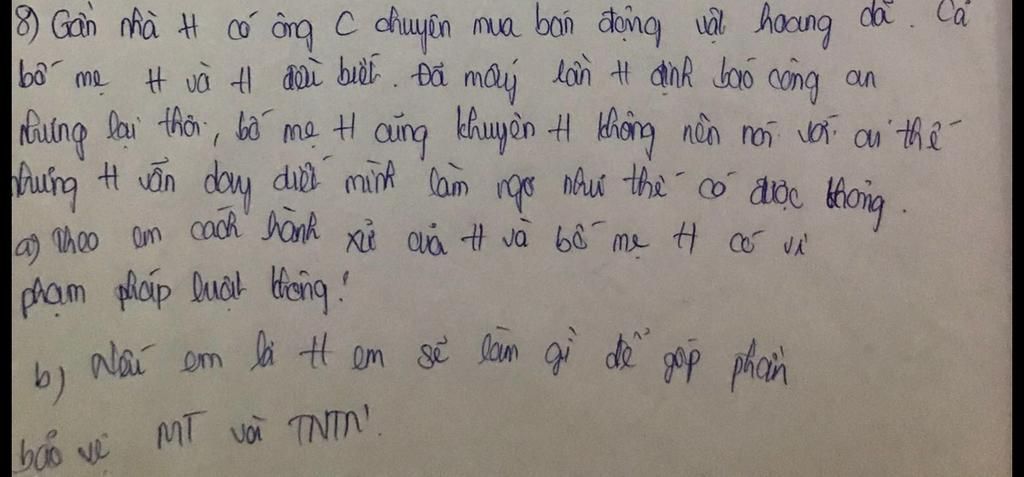 8) Gần nhà H có ông C chuyên mua bán động vật hoang dã. Cả
bố mẹ H và H đều biết. Đã mấy lần H định báo công an
nhưng lại thôi, bố mẹ H cũng khuyên H không nên nói với ai thế
nhưng H vẫn day diết mình làm ngơ như thế có được không.
a) Theo em cách hành xử của H và bố mẹ H có vi
phạm pháp luật không!
b) Nếu em là H em sẽ làm gì để góp phần
bảo vệ MT và TNTN'.